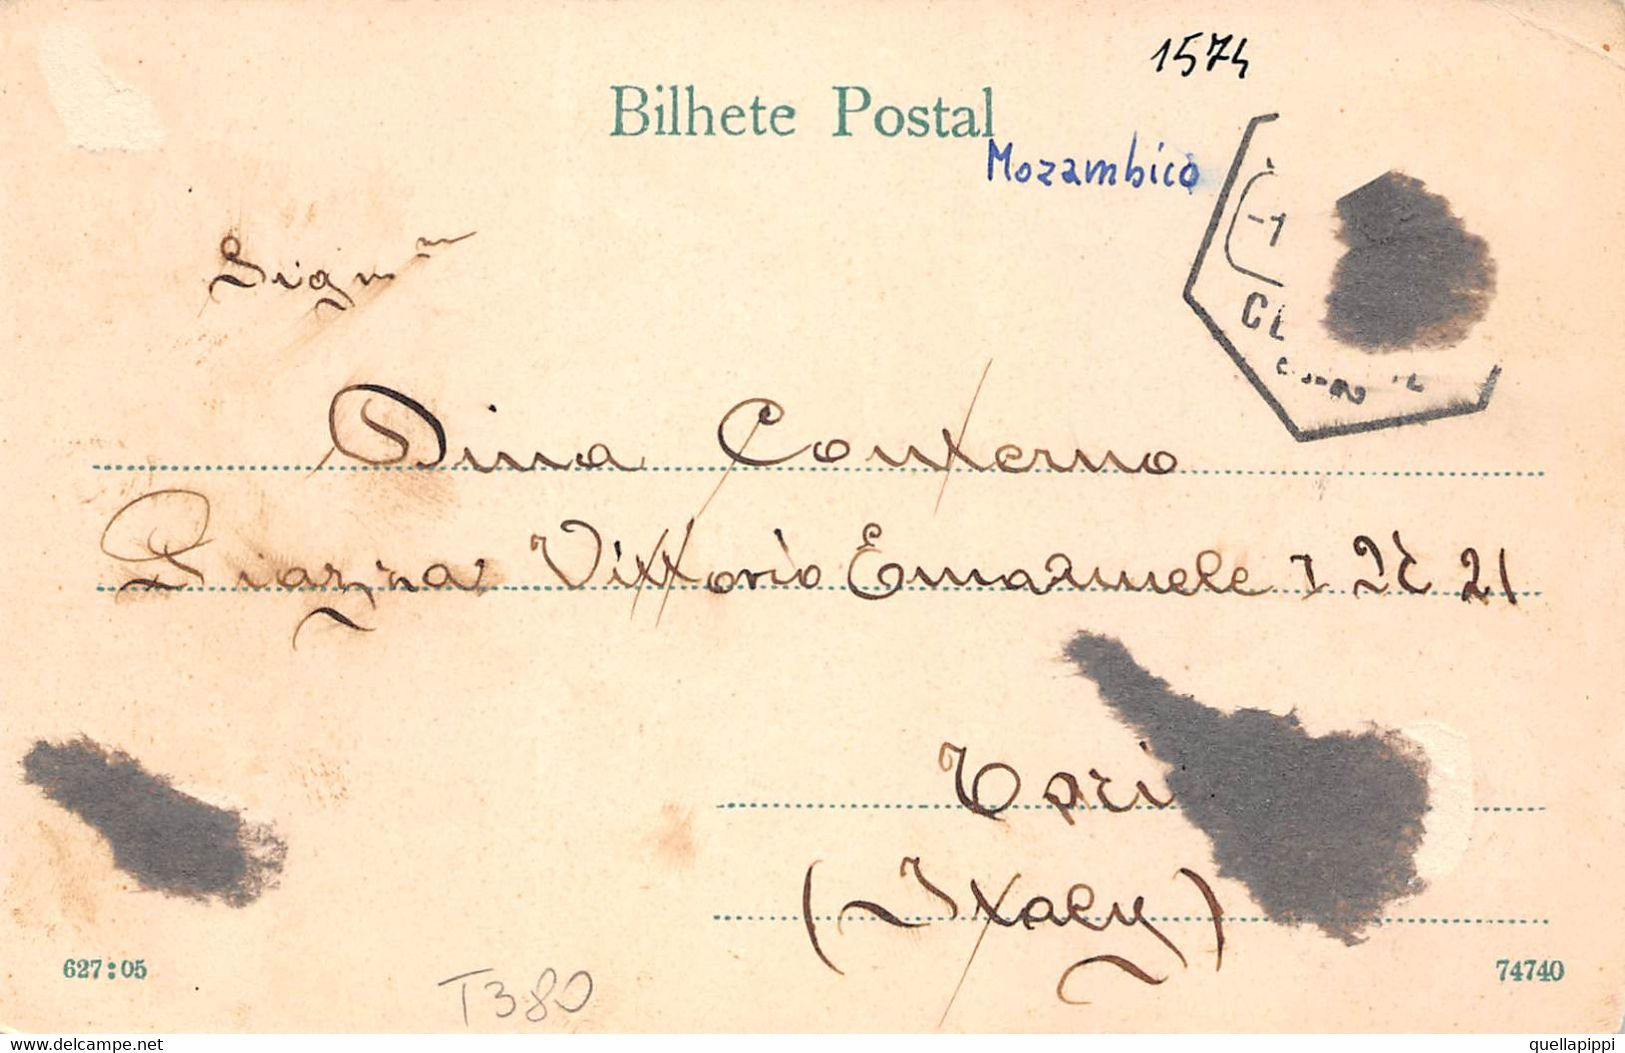 1574
Bilhete Postal
Mozambico
-1
Sign
Dina Conterno
Piazza Vittorio Emanuele I Nº 21
Tori
(Italy)
627:05
74740
T380
www.delcampe.net
quellapippi